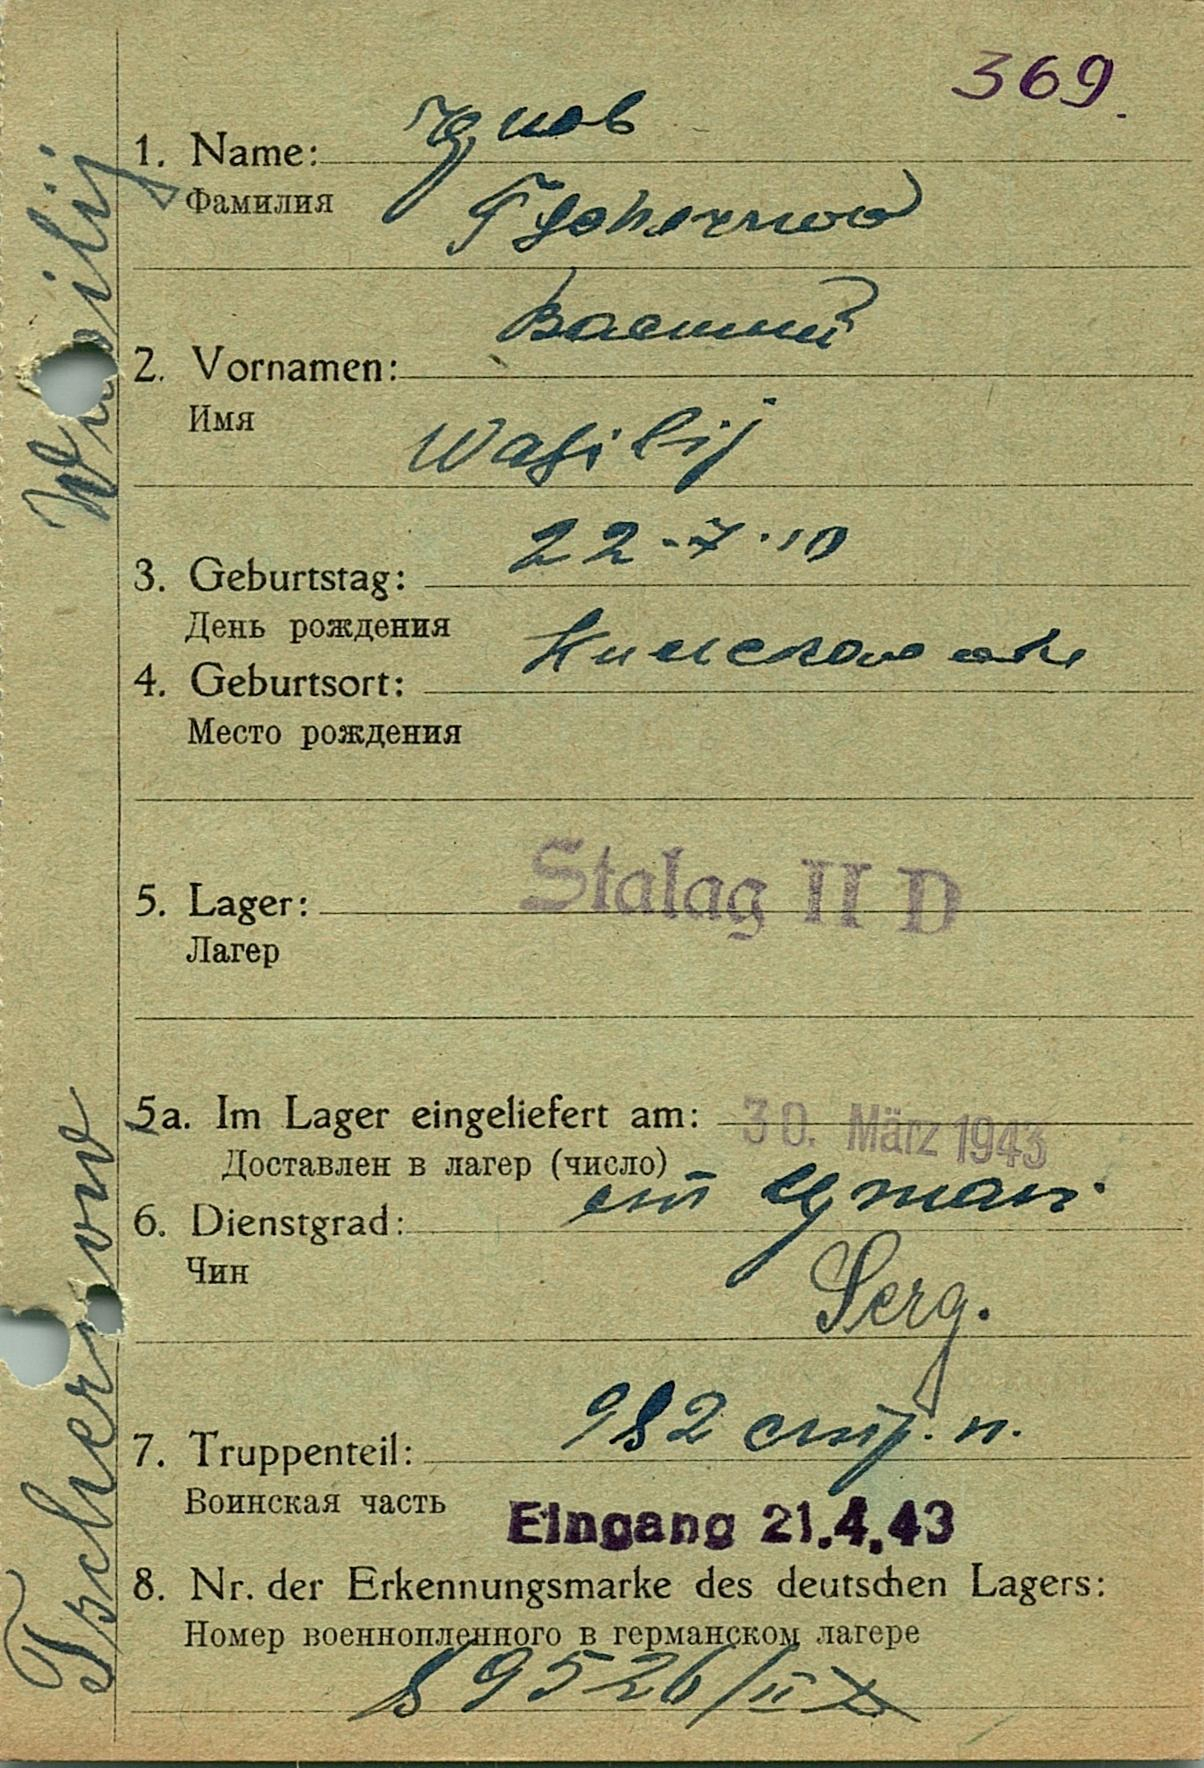 369.
1. Name:
Фамилия
Tschernow
Василий
2. Vornamen:
Имя
Wasilij
22-7-10
3. Geburtstag:
День рождения
4. Geburtsort:
Место рождения
Stalag II D
5. Lager:
Лагерь
5a. Im Lager eingeliefert am: 30. März 1943
Доставлен в лагер (число)
6. Dienstgrad:
Чин
Serg.
982 стр. п.
7. Truppenteil:
Воинская часть
Eingang 21.4.43
8. Nr. der Erkennungsmarke des deutschen Lagers:
Номер военнопленного в германском лагере
89526/II D
Tschernow Wasilij